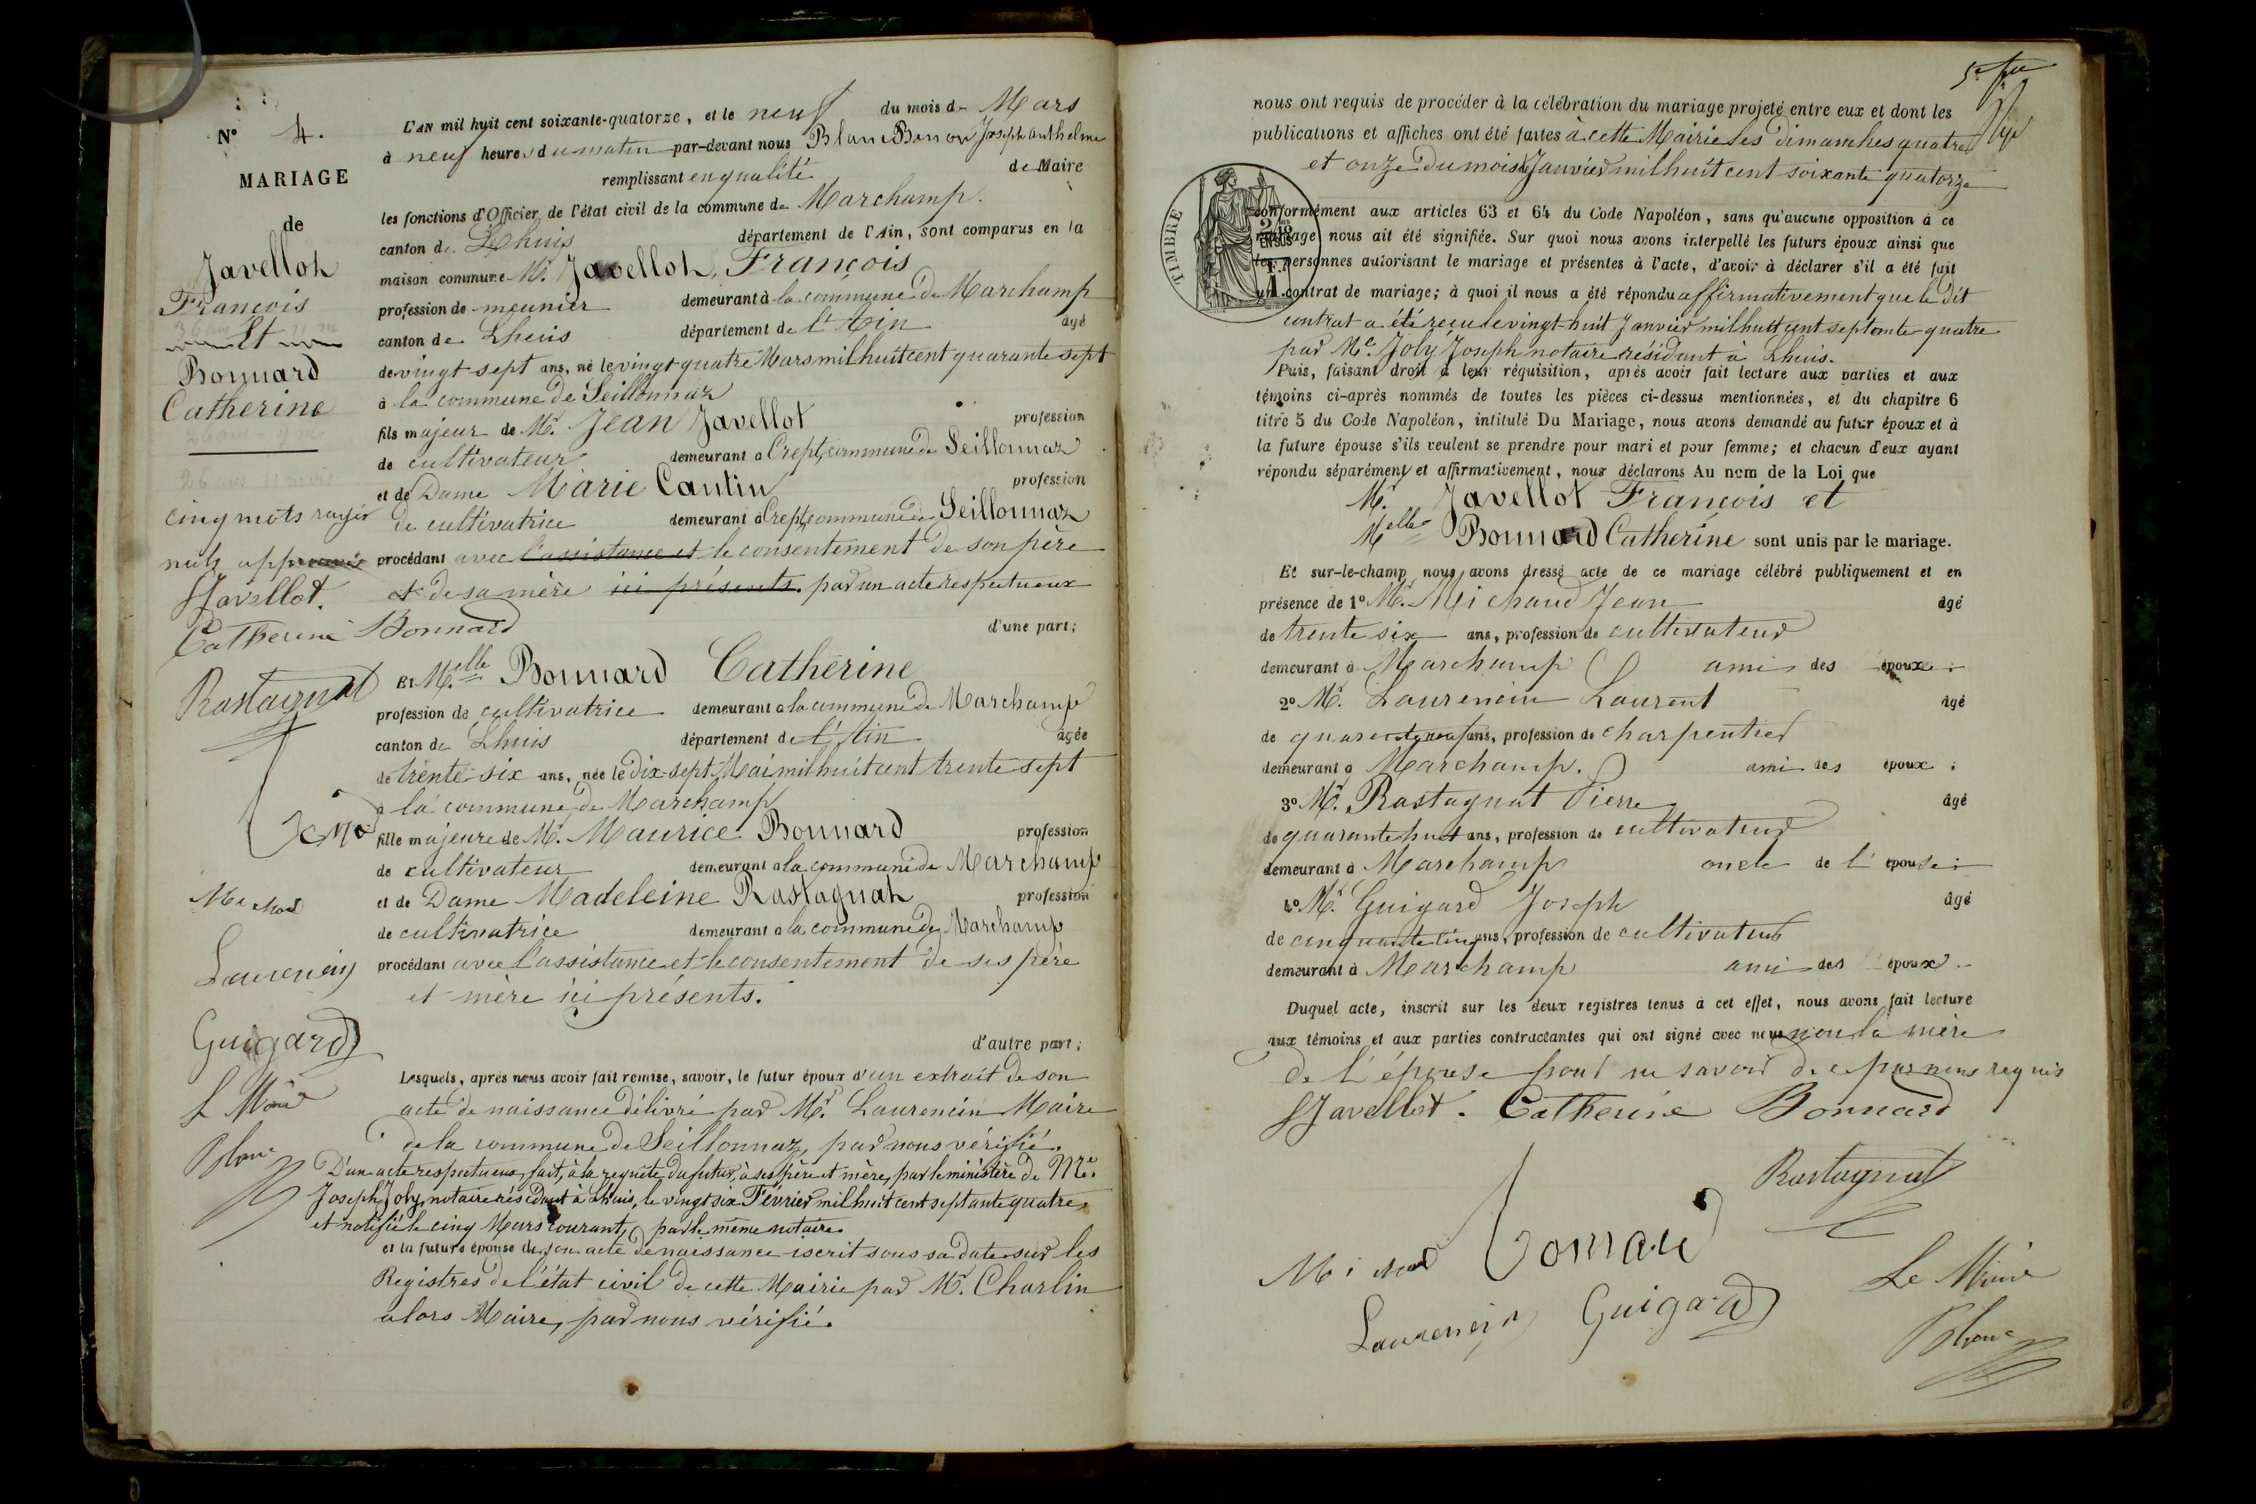 N° 4.
MARIAGE
de
Javellot
François
Et
Bonnard
Catherine
cinq mots rayés
nuls approuvés
Javellot.
Catherine Bonnard
Rastagnat
Michod
Laurencin
Guigard
Le Maire
Blanc
L'AN mil huit cent soixante-quatorze, et le neuf du mois de Mars
à neuf heures du matin par-devant nous Blanc Benon Joseph Anthelme
remplissant en qualité de Maire
les fonctions d'Officier de l'état civil de la commune de Marchamp.
canton de Lhuis département de l'Ain, sont comparus en la
maison commune Mr. Javellot, François
profession de meunier demeurant à la commune de Marchamp
canton de Lhuis département de l'Ain âgé
de vingt-sept ans, né le vingt-quatre Mars mil huit cent quarante sept
à la commune de Seillonnaz
fils majeur de Mr. Jean Javellot profession
de cultivateur demeurant à Crept, commune de Seillonnaz
et de Dame Marie Cantin profession
de cultivatrice demeurant à Crept, commune de Seillonnaz
procédant avec l'assistance et le consentement de son père
et de sa mère ici présents. par un acte respectueux
d'une part;
Et Melle Bonnard Catherine
profession de cultivatrice demeurant à la commune de Marchamp
canton de Lhuis département de l'Ain âgée
de trente-six ans, née le dix-sept Mai mil huit cent trente sept
à la commune de Marchamp
fille majeure de Mr. Maurice Bonnard profession
de cultivateur demeurant à la commune de Marchamp
et de Dame Madeleine Rastagnat profession
de cultivatrice demeurant à la commune de Marchamp
procédant avec l'assistance et le consentement de ses père
et mère ici présents.
d'autre part;
Lesquels, après nous avoir fait remise, savoir, le futur époux d'un extrait de son
acte de naissance délivré par Mr. Laurencin Maire
de la commune de Seillonnaz, par nous vérifié.
D'un acte respectueux fait, à la requête du futur, à ses père et mère, par le ministère de Me.
Joseph Joly, notaire résidant à Lhuis, le vingt six Février mil huit cent septante quatre,
et notifié le cinq Mars courant, par le même notaire.
et la future épouse de son acte de naissance iscrit sous sa date sur les
Registres de l'état civil de cette Mairie par Mr. Charlin
alors Maire, par nous vérifié.
nous ont requis de procéder à la célébration du mariage projeté entre eux et dont les
publications et affiches ont été faites à cette Mairie les dimanches quatre
et onze du mois de Janvier mil huit cent soixante quatorze
TIMBRE
2/10 EN SUS
conformément aux articles 63 et 64 du Code Napoléon, sans qu'aucune opposition à ce
mariage nous ait été signifiée. Sur quoi nous avons interpellé les futurs époux ainsi que
les personnes autorisant le mariage et présentes à l'acte, d'avoir à déclarer s'il a été fait
un contrat de mariage; à quoi il nous a été répondu affirmativement que le dit
contrat a été reçu le vingt-huit Janvier mil huit cent septante-quatre
par Me. Joly Joseph notaire résidant à Lhuis.
Puis, faisant droit à leur réquisition, après avoir fait lecture aux parties et aux
témoins ci-après nommés de toutes les pièces ci-dessus mentionnées, et du chapitre 6
titre 5 du Code Napoléon, intitulé Du Mariage, nous avons demandé au futur époux et à
la future épouse s'ils veulent se prendre pour mari et pour femme; et chacun d'eux ayant
répondu séparément et affirmativement, nous déclarons Au nom de la Loi que
Mr. Javellot François et
Melle Bonnard Catherine sont unis par le mariage.
Et sur-le-champ nous avons dressé acte de ce mariage célébré publiquement et en
présence de 1° Mr. Michaud Jean âgé
de trente six ans, profession de cultivateur
demeurant à Marchamp ami des époux;
2° Mr. Laurencin Laurent âgé
de quarante neuf ans, profession de charpentier
demeurant à Marchamp. ami des époux;
3° Mr. Rastagnat Pierre âgé
de quarante huit ans, profession de cultivateur
demeurant à Marchamp oncle de l'épouse;
4° Mr. Guigard Joseph âgé
de cinquante cinq ans, profession de cultivateur
demeurant à Marchamp ami des époux.
Duquel acte, inscrit sur les deux registres tenus à cet effet, nous avons fait lecture
aux témoins et aux parties contractantes qui ont signé avec nous non la mère
de l'épouse pour ne savoir de ce par nous requis
Javellot. Catherine Bonnard
Rastagnat
Michod Bonnard
Laurencin Guigard
Le Maire
Blanc